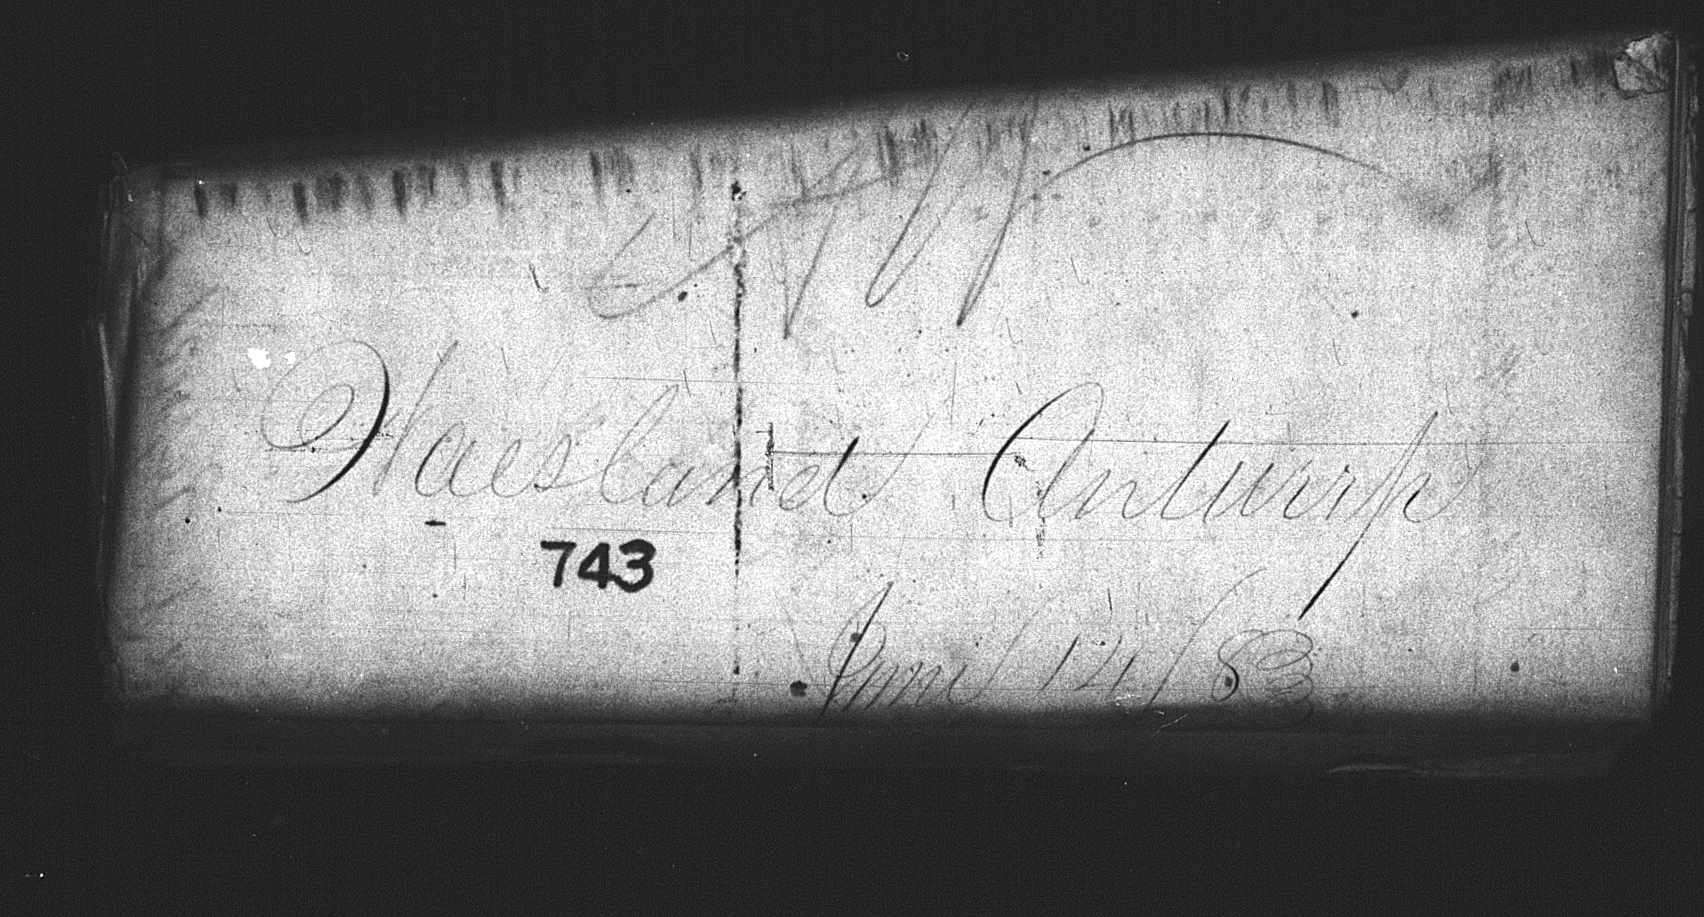 Waesland Antwerp
743
June 14/83